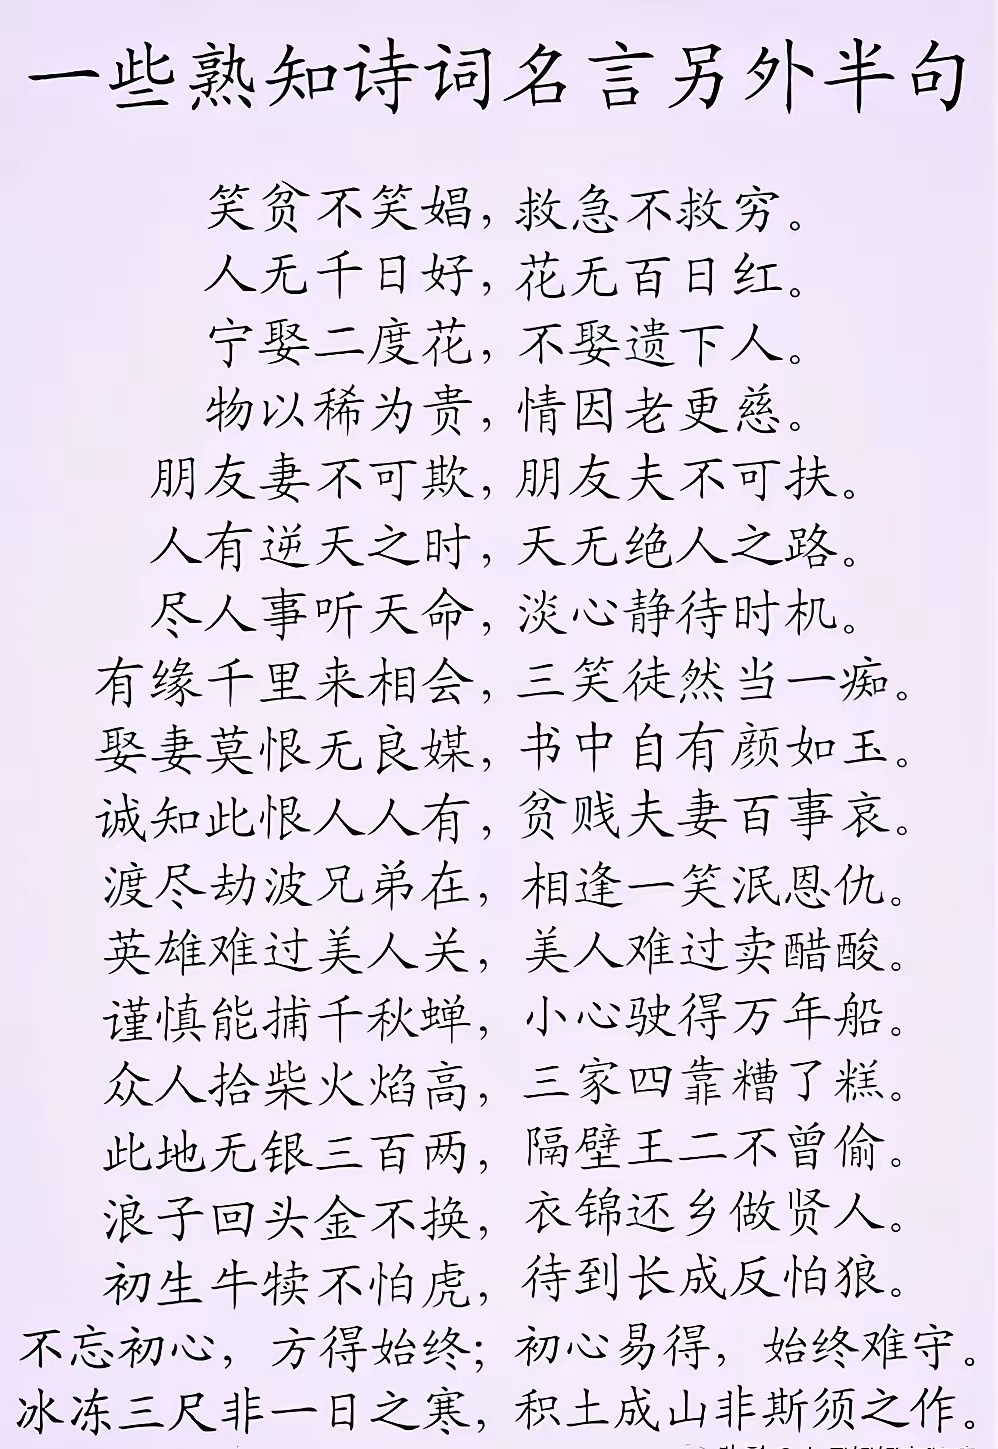 一些熟知诗词名言另外半句
笑贫不笑娼，救急不救穷。
人无千日好，花无百日红。
宁娶二度花，不娶遗下人。
物以稀为贵，情因老更慈。
朋友妻不可欺，朋友夫不可扶。
人有逆天之时，天无绝人之路。
尽人事听天命，淡心静待时机。
有缘千里来相会，三笑徒然当一痴。
娶妻莫恨无良媒，书中自有颜如玉。
诚知此恨人人有，贫贱夫妻百事哀。
渡尽劫波兄弟在，相逢一笑泯恩仇。
英雄难过美人关，美人难过卖醋酸。
谨慎能捕千秋蝉，小心驶得万年船。
众人拾柴火焰高，三家四靠糟了糕。
此地无银三百两，隔壁王二不曾偷。
浪子回头金不换，衣锦还乡做贤人。
初生牛犊不怕虎，待到长成反怕狼。
不忘初心，方得始终；初心易得，始终难守。
冰冻三尺非一日之寒，积土成山非斯须之作。